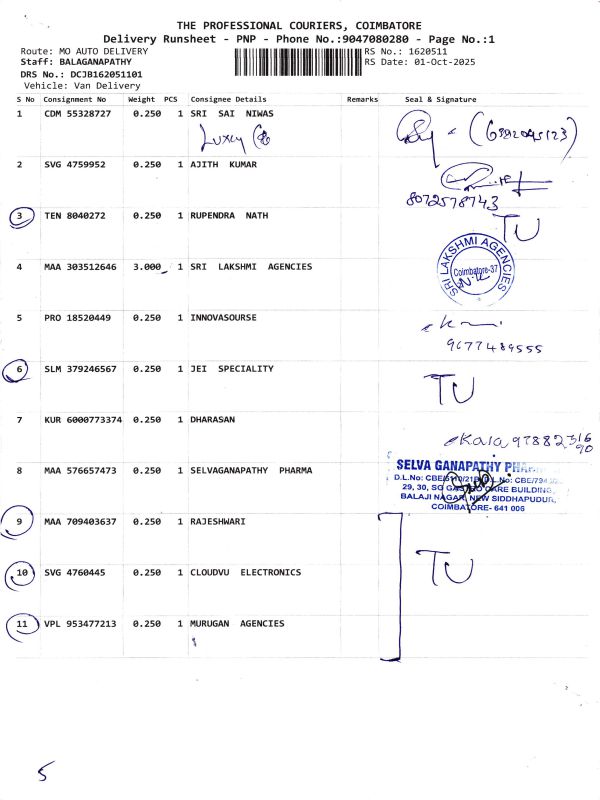 THE PROFESSIONAL COURIERS, COIMBATORE
Delivery Runsheet - PNP - Phone No.:9047080280 - Page No.:1
Route: MO AUTO DELIVERY RS No.: 1620511
Staff: BALAGANAPATHY RS Date: 01-Oct-2025
DRS No.: DCJB162051101
Vehicle: Van Delivery
S No Consignment No Weight PCS Consignee Details Remarks Seal & Signature
1 CDM 55328727 0.250 1 SRI SAI NIWAS
2 SVG 4759952 0.250 1 AJITH KUMAR
8072578743
3 TEN 8040272 0.250 1 RUPENDRA NATH TU
4 MAA 303512646 3.000 1 SRI LAKSHMI AGENCIES
SRI LAKSHMI AGENCIES
Coimbatore-37
5 PRO 18520449 0.250 1 INNOVASOURSE
9677489555
6 SLM 379246567 0.250 1 JEI SPECIALITY TU
7 KUR 6000773374 0.250 1 DHARASAN
Kala 97882316
90
8 MAA 576657473 0.250 1 SELVAGANAPATHY PHARMA
SELVA GANAPATHY
D.L.No: CBE
29, 30, CARE BUILDING,
BALAJI NAGAR, NEW SIDDHAPUDUR,
COIMBATORE- 641 006
9 MAA 709403637 0.250 1 RAJESHWARI
10 SVG 4760445 0.250 1 CLOUDVU ELECTRONICS TU
11 VPL 953477213 0.250 1 MURUGAN AGENCIES
5